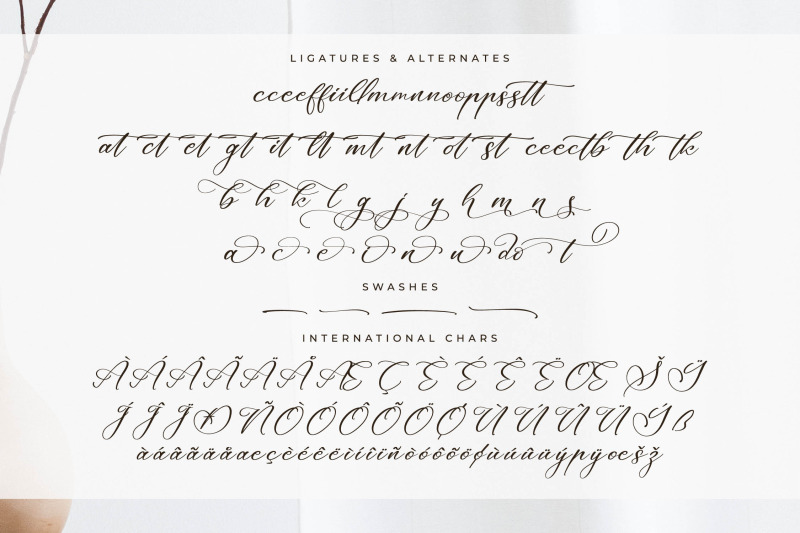 LIGATURES & ALTERNATES
cceeffiillmmnnooppssstt
at ct et gt it lt mt nt ot st ceectb th tk
b h k l g j y h m n s
a c e i n u do t
SWASHES
INTERNATIONAL CHARS
ÀÁÂÃÄÅÆÇÈÉÊËŒŠŸ
ÍÎÏÐÑÒÓÔÕÖØÙÚÛÜÝß
àáâãäåæçèéêëìíîïñòóôõöøùúûüýþÿœšž